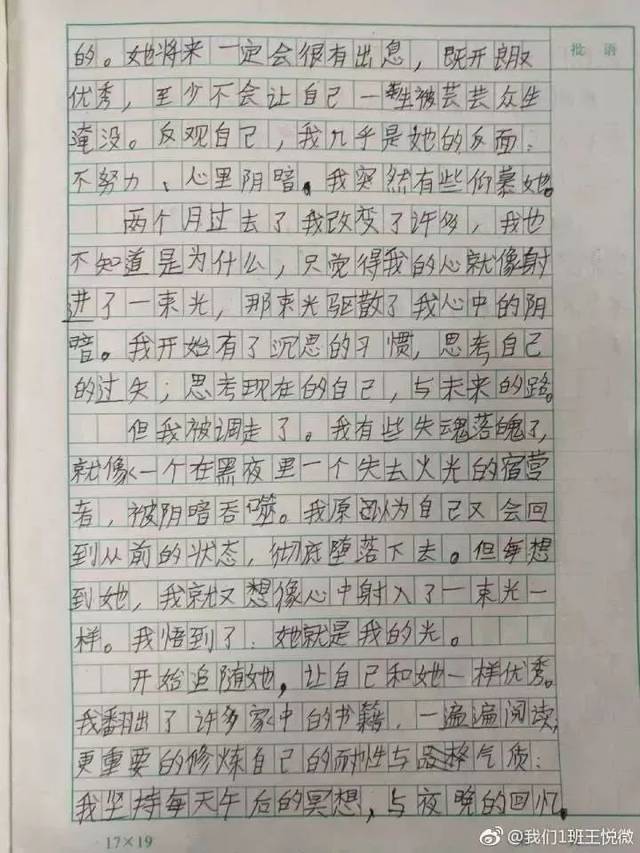 批 语
的。她将来一定会很有出息，既开朗又
优秀，至少不会让自己一生被芸芸众生
淹没。反观自己，我几乎是她的反面：
不努力、心里阴暗。我突然有些仰慕她。
两个月过去了我改变了许多，我也
不知道是为什么，只觉得我的心就像射
进了一束光，那束光驱散了我心中的阴
暗。我开始有了沉思的习惯，思考自己
的过失；思考现在的自己，与未来的路。
但我被调走了。我有些失魂落魄了，
就像一个在黑夜里一个失去火光的宿营
者，被阴暗吞噬。我原以为自己又会回
到从前的状态，彻底堕落下去。但每想
到她，我就又想像心中射入了一束光一
样。我悟到了：她就是我的光。
开始追随她，让自己和她一样优秀。
我翻出了许多家中的书籍，一遍遍阅读，
更重要的修炼自己的耐性与品格气质：
我坚持每天午后的冥想，与夜晚的回忆，
17×19
@我们1班王悦微